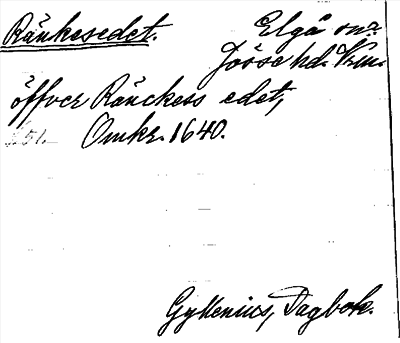 Ränkesedet. Elgå sn.
Jösse hd. Vrm.
öffver Ränckess edet,
51. Omkr. 1640.
Gyllenius, Dagbok.